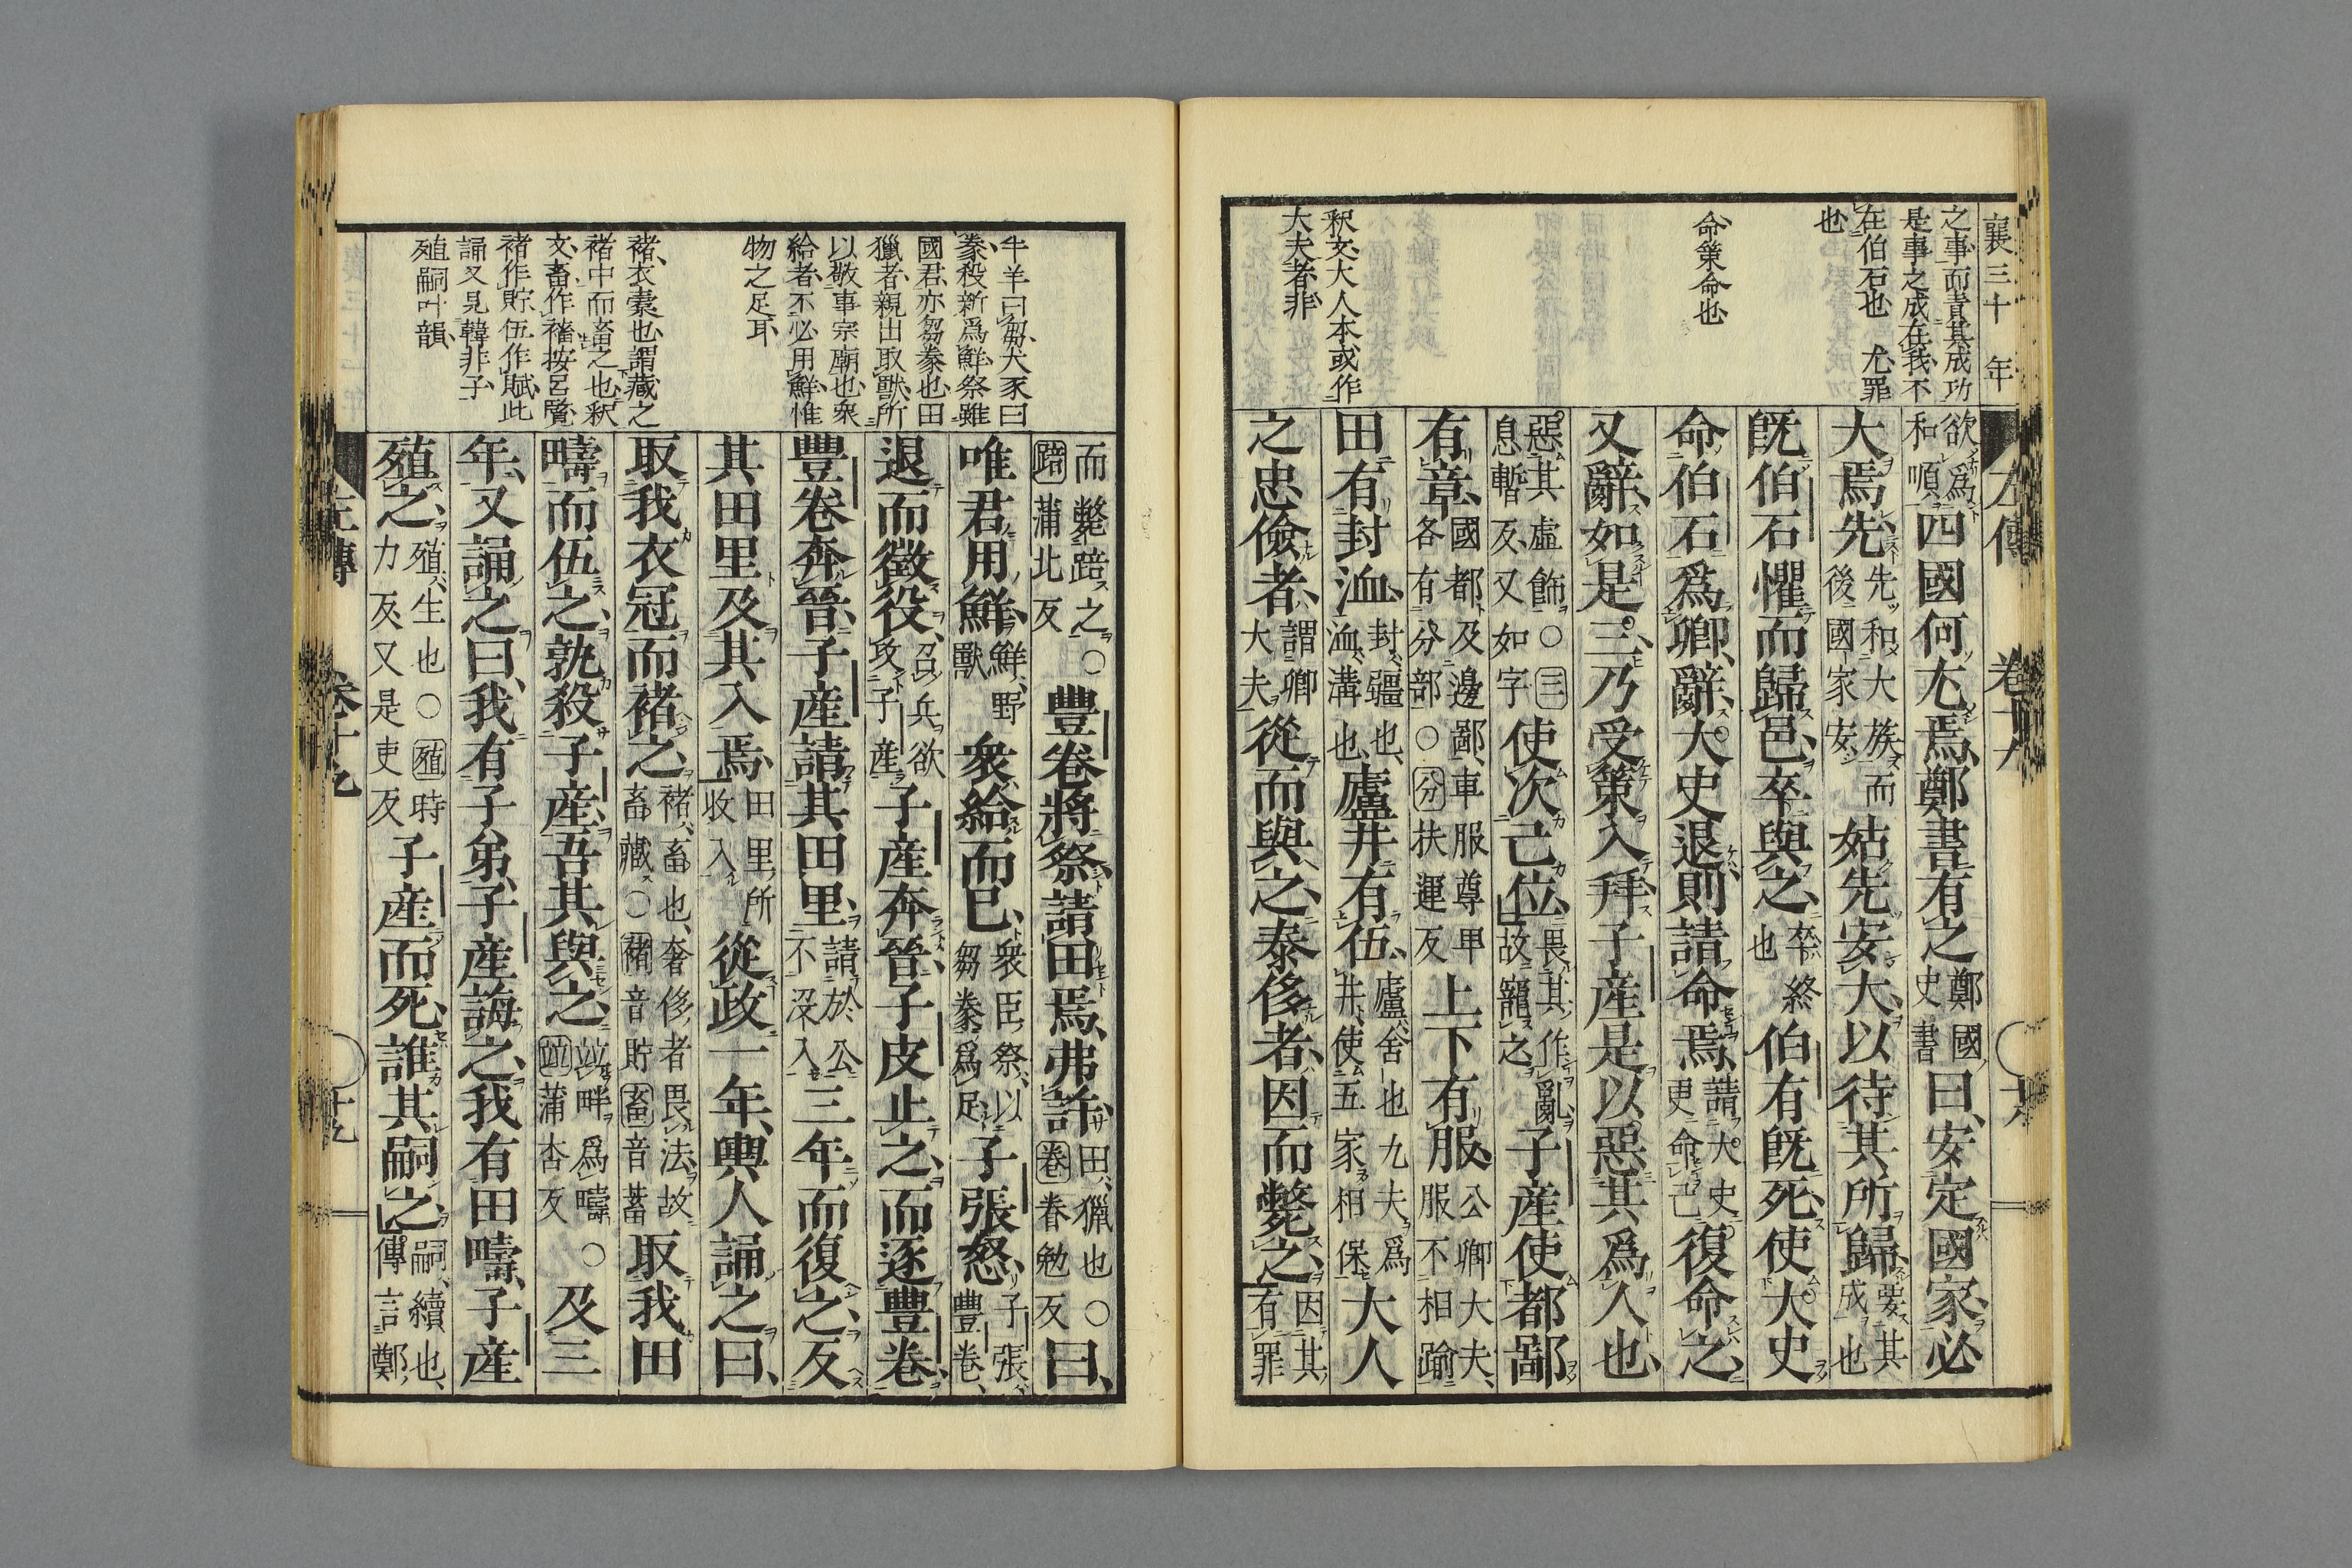 襄三十年
左傳
卷十九
十八
之事而責其成功
是事之成在我不
在伯石也 尤罪
也
命策命也
釈文大人本或作
大夫者非
欲爲和順四國何尤焉鄭書有之鄭國史書曰安定國家必
大焉先先和大族而後國家安姑先安大以待其所歸要其成也
既伯石懼而歸邑卒與之卒終也伯有既死使大史
命伯石爲卿辭大史退則請命焉請大史更命己復命之
又辭如是三乃受策入拜子産是以惡其爲人也
惡其虛飾○三息暫反又如字使次己位畏其作亂故寵之子産使都鄙
有章國都及邊鄙車服尊卑各有分部○分扶運反上下有服公卿大夫服不相踰
田有封洫封疆也洫溝也廬井有伍廬舍也九夫爲井使五家相保大人
之忠儉者謂卿大夫從而與之泰侈者因而斃之因其有罪
牛羊曰芻犬豕曰
豢殺新爲鮮祭雖
國君亦芻豢也田
獵者親出取獸所
以敬事宗廟也衆
給者不必用鮮惟
物之足耳
褚衣囊也謂藏之
褚中而畜之也釈
文畜作褚按呂覽
褚作貯伍作賦此
誦又見韓非子
殖嗣叶韻
而斃踣之○踣蒲北反豐卷將祭請田焉弗許田獵也○卷眷勉反曰
唯君用鮮鮮野獸衆給而已衆臣祭以芻豢爲足子張怒子張豐卷
退而徵役召兵欲攻子産子産奔晉子皮止之而逐豐卷
豐卷奔晉子産請其田里請於公不沒入三年而復之反
其田里及其入焉田里所收入從政一年輿人誦之曰
取我衣冠而褚之褚畜也奢侈者畏法故畜藏○褚音貯畜音蓄取我田
疇而伍之孰殺子産吾其與之並畔爲疇○並蒲杏反及三
年又誦之曰我有子弟子産誨之我有田疇子産
殖之殖生也○殖時力反又是吏反子産而死誰其嗣之嗣續也傳言鄭
左傳
卷十九
十九